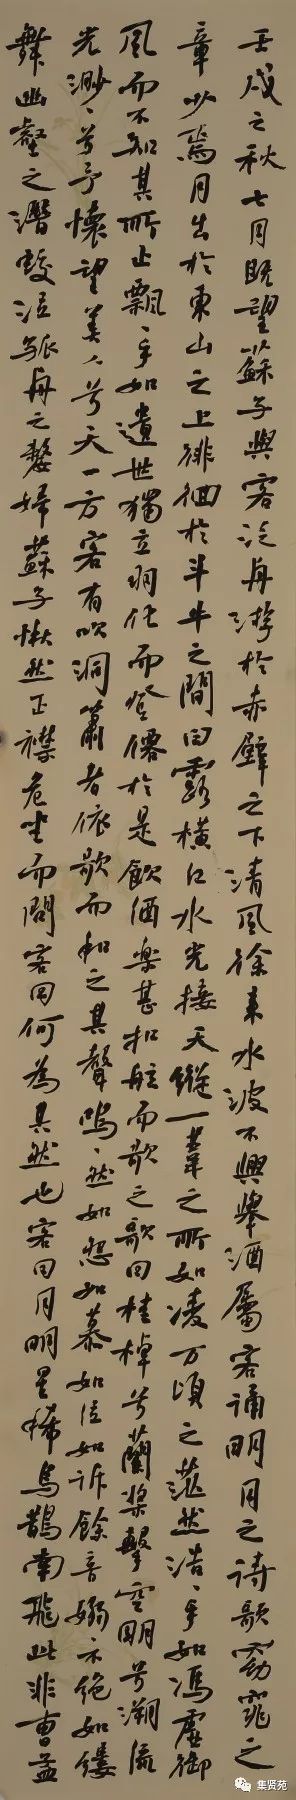 壬戌之秋七月既望蘇子與客泛舟游於赤壁之下清風徐來水波不興舉酒屬客誦明月之詩歌窈窕之
章少焉月出於東山之上徘徊於斗牛之間白露橫江水光接天縱一葦之所如凌万頃之茫然浩、乎如馮虛御
風而不知其所止飄、乎如遺世獨立羽化而登僊於是飲酒樂甚扣舷而歌之歌曰桂棹兮蘭槳擊空明兮溯流
光渺、兮予懷望美人兮天一方客有吹洞簫者依歌而和之其聲嗚、然如怨如慕如泣如訴餘音嫋、不絕如縷
舞幽壑之潛蛟泣孤舟之嫠婦蘇子愀然正襟危坐而問客曰何為其然也客曰月明星稀烏鵲南飛此非曹孟
集贤苑